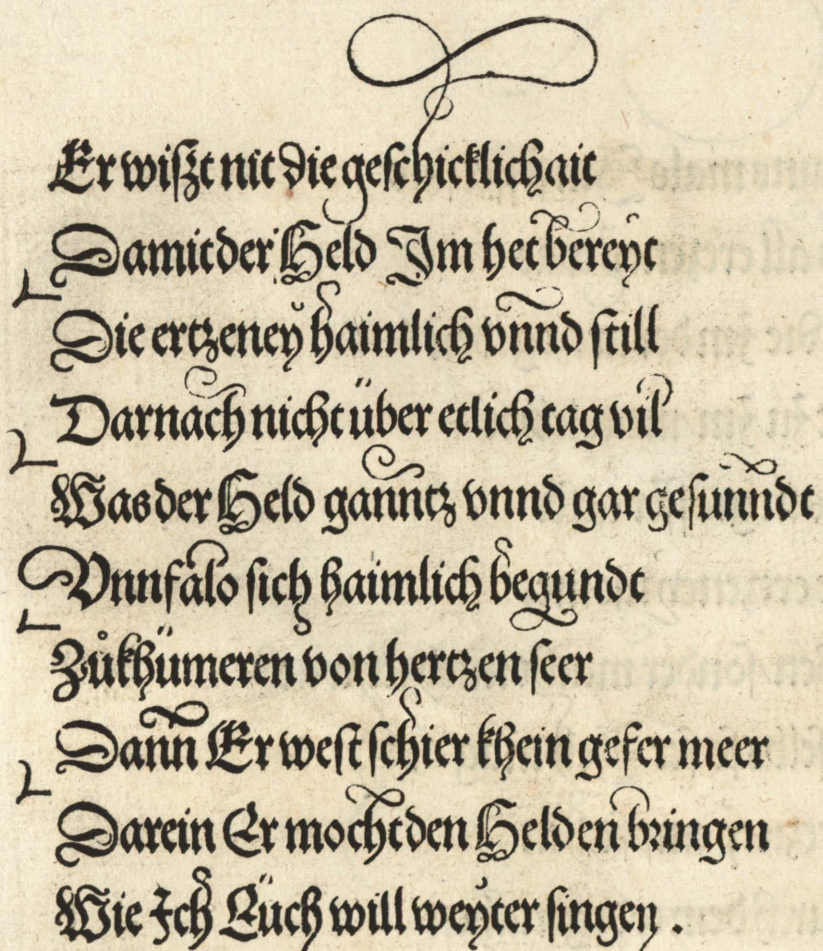 Er wiſzt nit die geſchicklichait
Damit der Held Im het bereÿt
Die ertzeneÿ haimlich vnnd ſtill
Darnach nicht über etlich tag vil
Was der Held ganntz vnnd gar geſunndt
Vnnfalo ſich haimlich begundt
Zůkhümeren von hertzen ſeer
Dann Er weſt ſchier khein gefer meer
Darein Er mocht den Helden bringen
Wie Ich Eüch will weÿter ſingen .